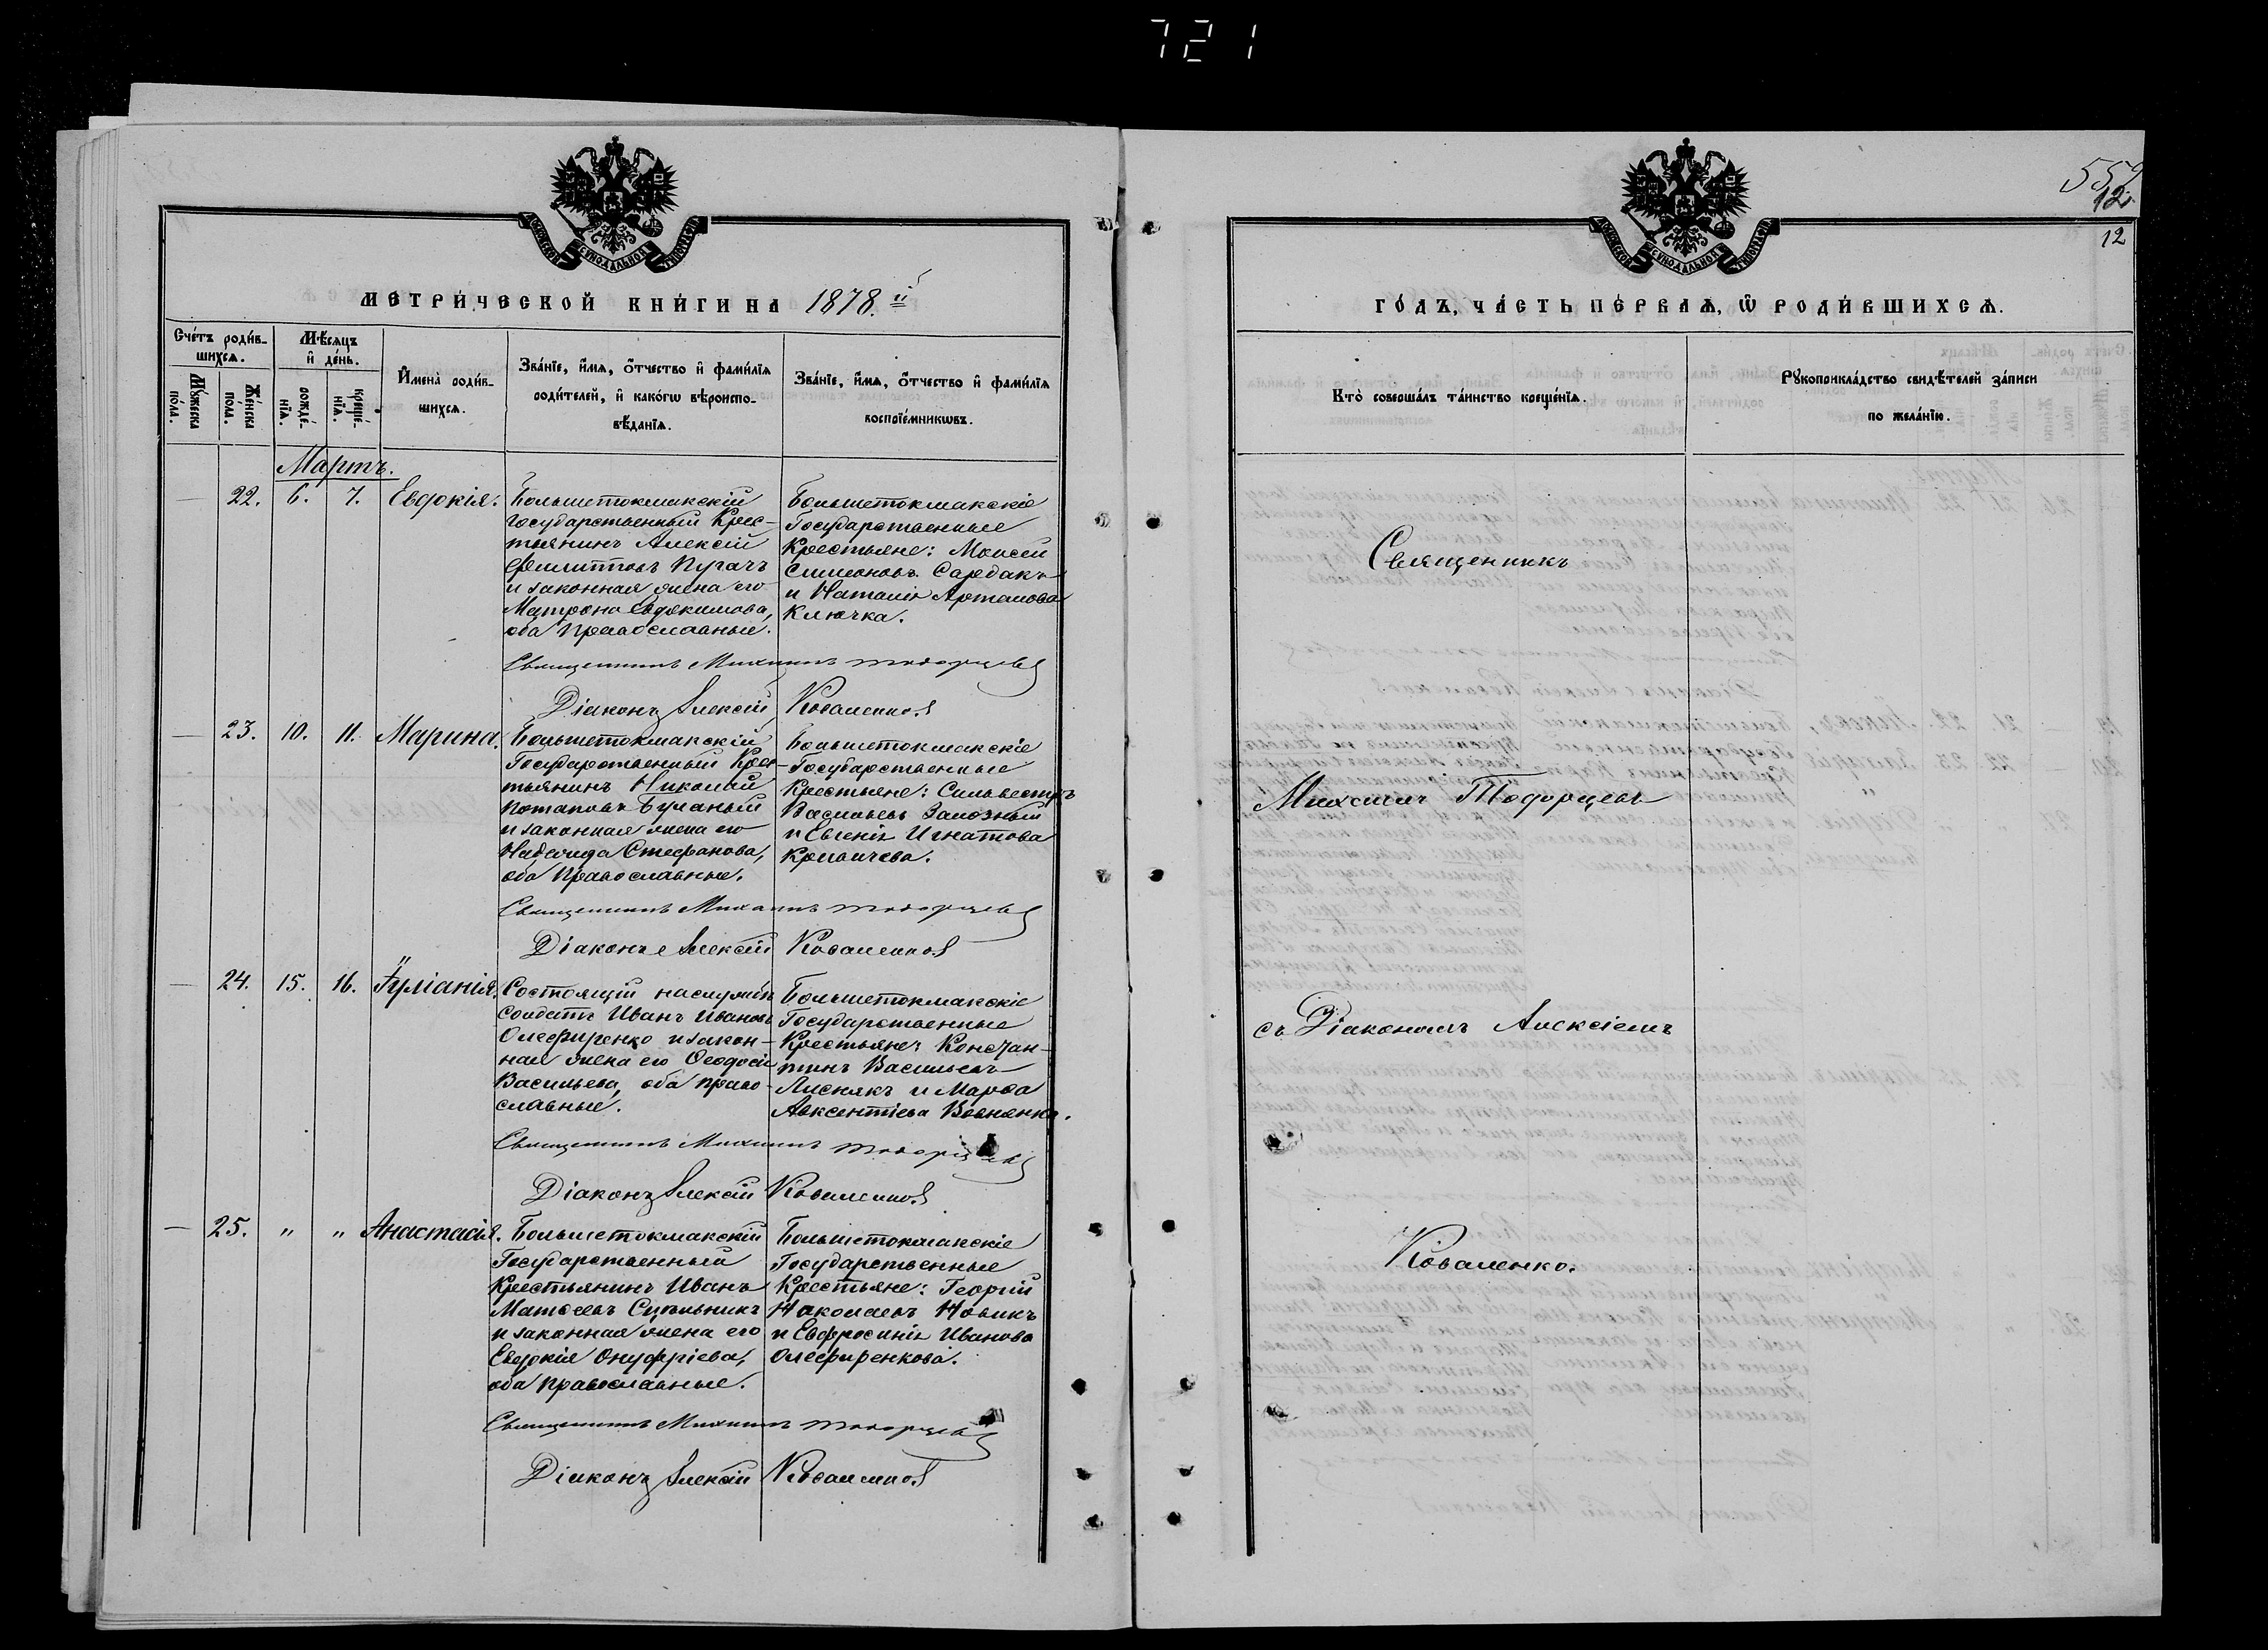 721
559
12.
12
МЕТРИЧЕСКОЙ КНИГИ НА 1878.й
ГОДЪ, ЧАСТЬ ПЕРВАЯ, Ѿ РОДИВШИХСЯ.
Счетъ родив-
шихся.
Мужеска
пола.
Женска
пола.
Мѣсяцъ
и день.
рожде-
нїя.
креще-
нїя.
Имена родив-
шихся.
Званїе, имя, отчество и фамилїя
родителей, и какогѡ вѣроиспо-
вѣданїя.
Званїе, имя, отчество и фамилїя
воспрїемникѡвъ.
Кто совершалъ таинство крещенїя.
Рукоприкладство свидѣтелей записи
по желанїю.
Мартъ.
— 22. 6. 7. Евдокія.
Большетокмакскій
государственный Крес-
тьянинъ Алексій
Филипповъ Пугачъ
и законная жена его
Матрона Евдокимова,
оба православные.
Большетокмакскіе
Государственные
Крестьяне: Моисей
Симеоновъ Сардакъ
и Наталія Артамова
Ключка.
Священникъ Михаилъ Тодорцевъ
Діаконъ Алексій Коваленко
— 23. 10. 11. Марина.
Большетокмакскій
Государственный Крес-
тьянинъ Николай
Потаповъ Буланый
и законная жена его
Надежда Стефанова,
оба православные.
Большетокмакскіе
Государственные
Крестьяне: Сильвестръ
Васильевъ Залозный
и Евгенія Игнатова
Священникъ Михаилъ Тодорцевъ
Діаконъ Алексій Коваленко
— 24. 15. 16. Іуліанія.
Состоящій на службѣ
Солдатъ Иванъ Ивановъ
Олефиренко и закон-
ная жена его Ѳеодосія
Васильева, оба право-
славные.
Большетокмакскіе
Государственные
Крестьяне: Констан-
тинъ Васильевъ
Лиснякъ и Марѳа
Авксентіева Вовнянко.
Священникъ Михаилъ Тодорцевъ
Діаконъ Алексій Коваленко
— 25. " " Анастасія.
Большетокмакскій
Государственный
Крестьянинъ Иванъ
Матѳеевъ
и законная жена его
Евдокія Онуфріева,
оба православные.
Большетокмакскіе
Государственные
Крестьяне: Георгій
Николаевъ Новикъ
и Евфросинія Иванова
Олефиренкова.
Священникъ Михаилъ Тодорцевъ
Діаконъ Алексій Коваленко
Священникъ
Михаилъ Тодорцевъ
съ Діакономъ Алексіемъ
Коваленко.